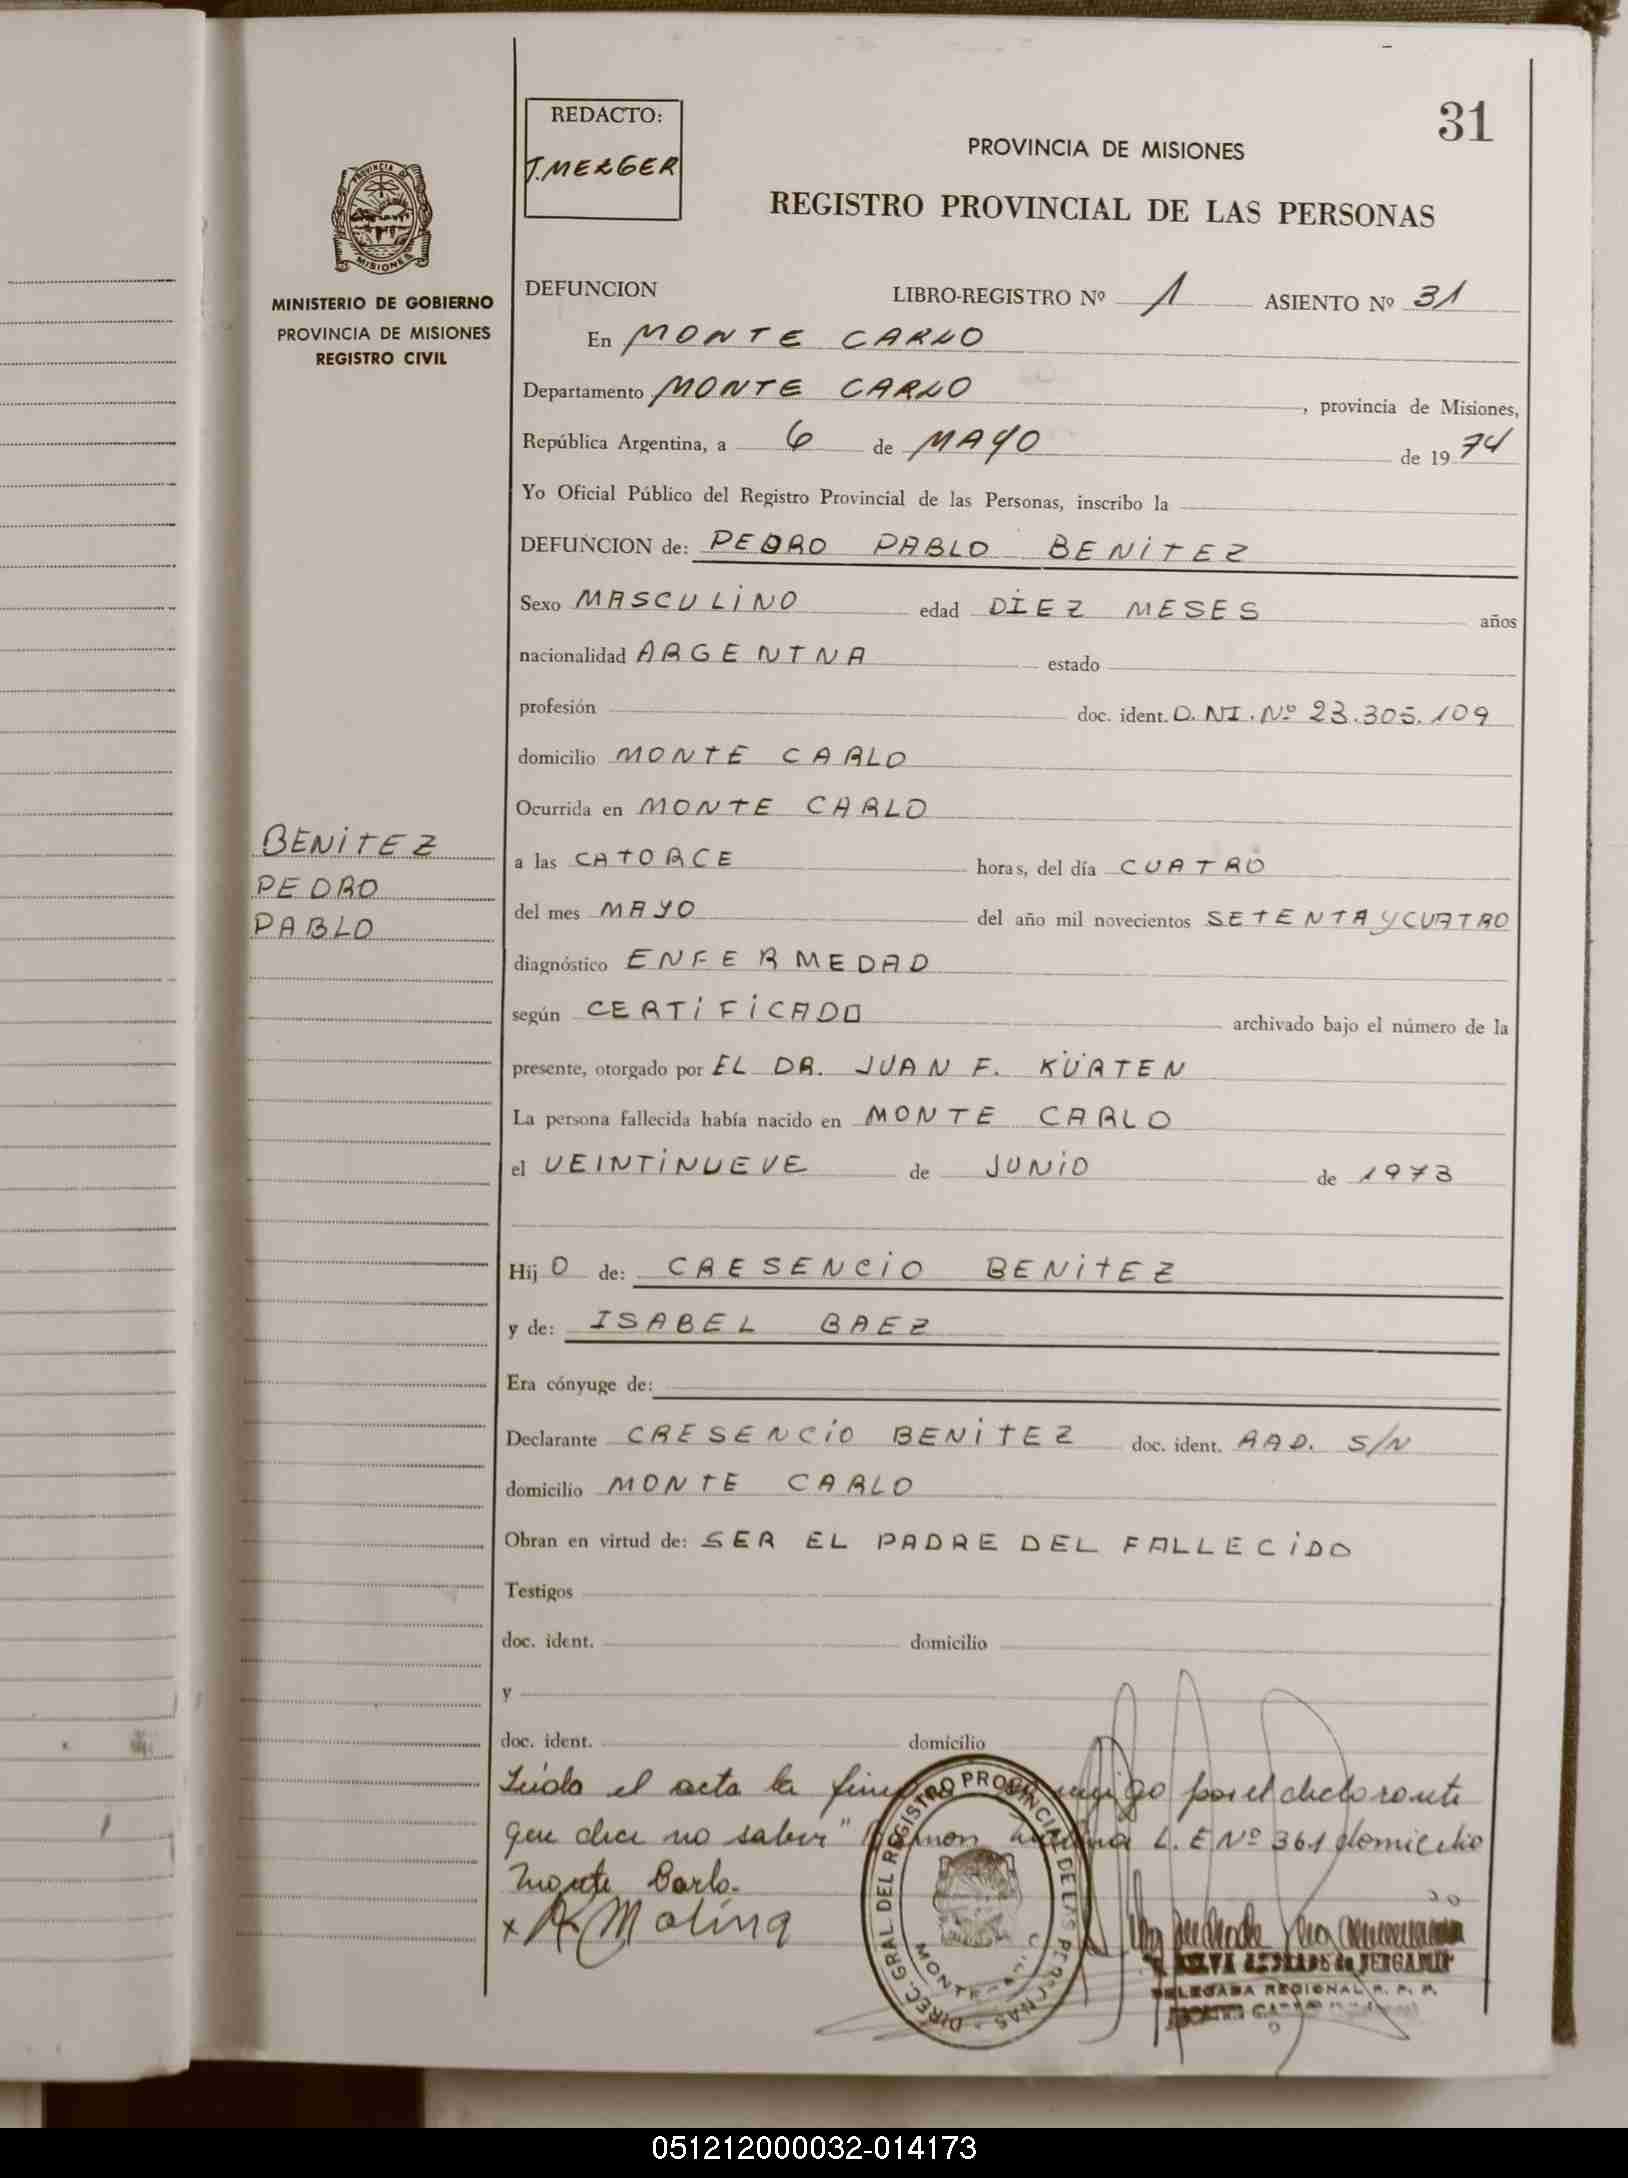 31
REDACTO:
J. MELGER
PROVINCIA DE MISIONES
REGISTRO PROVINCIAL DE LAS PERSONAS
PROVINCIA DE
MISIONES
MINISTERIO DE GOBIERNO
PROVINCIA DE MISIONES
REGISTRO CIVIL
DEFUNCION LIBRO-REGISTRO Nº 1 ASIENTO Nº 31
En MONTE CARLO
Departamento MONTE CARLO, provincia de Misiones,
República Argentina, a 6 de MAYO de 1974
Yo Oficial Público del Registro Provincial de las Personas, inscribo la
DEFUNCION de: PEDRO PABLO BENITEZ
Sexo MASCULINO edad DIEZ MESES años
nacionalidad ARGENTNA estado
profesión doc. ident. D.NI.Nº 23.305.109
domicilio MONTE CARLO
Ocurrida en MONTE CARLO
BENITEZ
PEDRO
PABLO
a las CATORCE horas, del día CUATRO
del mes MAYO del año mil novecientos SETENTA Y CUATRO
diagnóstico ENFERMEDAD
según CERTIFICADO archivado bajo el número de la
presente, otorgado por EL DR. JUAN F. KÜRTEN
La persona fallecida había nacido en MONTE CARLO
el VEINTINUEVE de JUNIO de 1973
Hij O de: CRESENCIO BENITEZ
y de: ISABEL BAEZ
Era cónyuge de:
Declarante CRESENCIO BENITEZ doc. ident. AAD. S/N
domicilio MONTE CARLO
Obran en virtud de: SER EL PADRE DEL FALLECIDO
Testigos
doc. ident. domicilio
y
doc. ident. domicilio
Leída el acta la conmigo por el declarante
que dice no saber" Ramon Molina L. E Nº 361 domicilio
Monte Carlo.
x R Molina
DIREC. GRAL DEL REGISTRO PROVINCIAL DE LAS PERSONAS
MONTE CARLO
DELEGADA REGIONAL R. P. P.
051212000032-014173